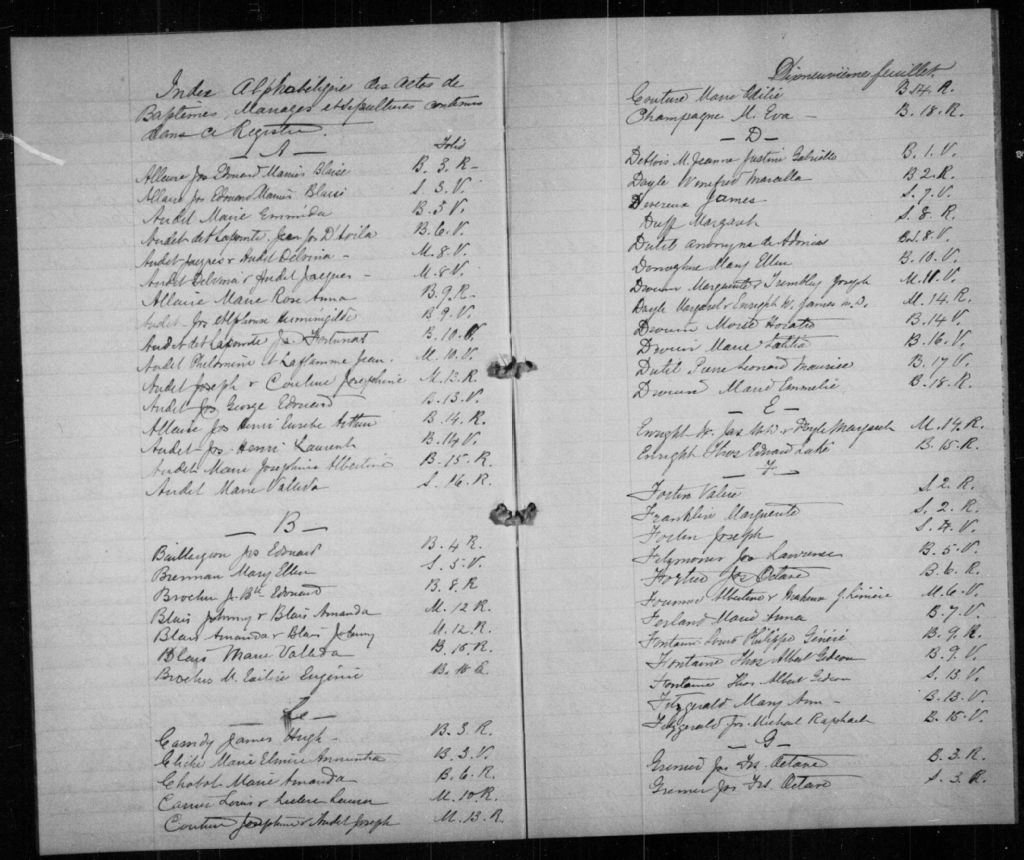 Index Alphabétique des actes de
Baptêmes, Mariages et Sépultures contenus
dans ce Registre.
— A — Folio
Allaire Jos Edouard Marius Blaise B. 3. R.
Allaire Jos Edmond Marius Blaise S. 3. V.
Audet Marie Erminda B. 5 V.
Audet dit Lapointe Jean Jos D'Loila B. 6. V.
Audet Jacques & Audet Delvina – M. 8. V.
Audet Delvina & Audet Jacques – M. 8 V.
Allaire Marie Rose Anna B. 9. R.
Audet Jos Alphonse Herminigilde B. 9 V.
Audet dit Lapointe Jos Fortunat B. 10. V.
Audet Philomène et Laflamme Jean. M. 10. V.
Audet Joseph & Couture Josephine M. 13. R.
Audet Jos George Edouard B. 13. V.
Allaire Jos Henri Eusèbe Arthur B. 14. R.
Audet Jos Henri Laurent B. 14 V.
Audet Marie Josephine Albertine B. 15. R.
Audet Marie Valleda S. 16. R.
— B —
Baillargeon Jos Edouard B. 4 R.
Brennan Mary Ellen S. 5. V.
Brochu J. Bte Edouard B. 8. R
Blais Johnny & Blais Amanda M. 12 R.
Blais Amanda & Blais Johnny M. 12. R.
Blais Marie Valleda B. 15. R.
Brochu M. Exilie Eugénie B. 18 R
— C —
Cassidy James Hugh – B. 3. R.
Cliche Marie Elmire Annuntia B. 3. V.
Chabot Marie Amanda B. 6. R.
Carrier Louis & Leclerc Laura M. 10. R.
Couture Josephine & Audet Joseph M. 13. R.
Dixneuvième feuillet.
Couture Marie Edilie B. 14. R.
Champagne M. Eva – B. 18. R.
— D —
DeBlois M. Jeanne Justine Gabrielle B. 1. V.
Doyle Winefred Marcella B. 2. R.
Devereux James S. 7. V.
Duff Margaret S. 8. R.
Dutil anonyme de Adonias 8. V.
Donoghue Mary Ellen B. 10. V.
Drouin Marguerite & Trembley Joseph M. 11. V.
Doyle Margaret & Enright W. James M.D. M. 14. R.
Drouin Moïse Horatio B. 14 V.
Drouin Marie B. 16. V.
Dutil Pierre Leonard Maurice B. 17 V.
Drouin Marie Emmelie B. 18. R.
— E —
Enright W. Jas M.D. & Doyle Margaret M. 14. R.
Enright Thos Edward Luke B. 15. R.
— F —
Fortin Valère S. 2. R.
Franklin Marguerite S. 2. R.
Fortin Joseph S. 4. V.
Fitzmorris Jos Lawrence B. 5. V.
Fortier Jos Octave B. 6. R.
Fournier Albertine & J. Linière M. 6. V.
Ferland Marie Anna B. 7. V.
Fontaine Louis Philippe B. 9. R.
Fontaine Thos Albert Gédéon B. 9. V.
Fontaine Thos Albert Gédéon S. 13. V.
Fitzgerald Mary Ann – B. 13. V.
Fitzgerald Jos Michael Raphael B. 15. V.
— G —
Grenier Jos Frs. Octave B. 3. R.
Grenier Jos Frs. Octave S. 3. R.